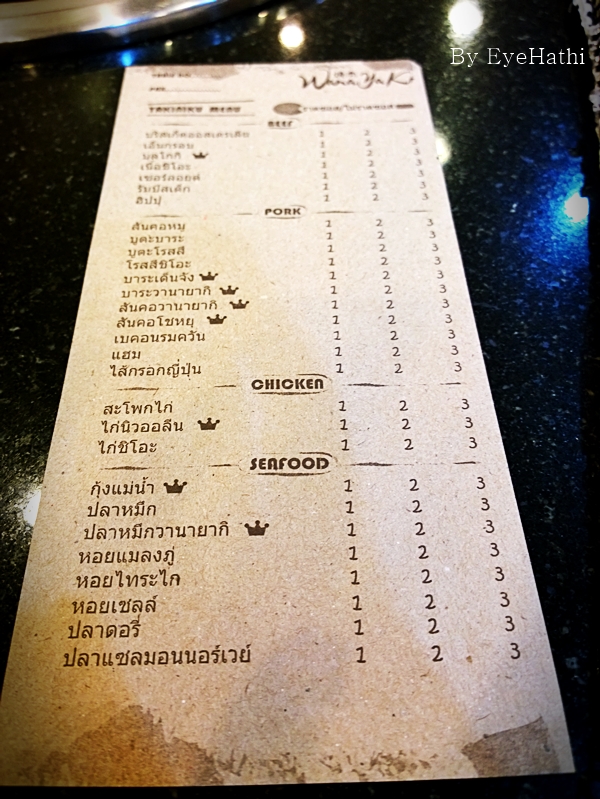 By EyeHathi
Wana Yaki
YAKINIKU MENU
BEEF
บริสเก็ตออสเตรเลีย 1 2 3
เอ็นกรอบ 1 2 3
บุลโกกิ 1 2 3
เนื้อชิโอะ 1 2 3
เซอร์ลอยด์ 1 2 3
ริบบีสเต็ก 1 2 3
ฮิปปุ 1 2 3
PORK
สันคอหมู 1 2 3
บูตะบาระ 1 2 3
บูตะโรสสึ 1 2 3
โรสสึชิโอะ 1 2 3
บาระเด็นจัง 1 2 3
บาระวานายากิ 1 2 3
สันคอวานายากิ 1 2 3
สันคอโชหยุ 1 2 3
เบคอนรมควัน 1 2 3
แฮม 1 2 3
ไส้กรอกญี่ปุ่น 1 2 3
CHICKEN
สะโพกไก่ 1 2 3
ไก่นิวออลีน 1 2 3
ไก่ชิโอะ 1 2 3
SEAFOOD
กุ้งแม่น้ำ 1 2 3
ปลาหมึก 1 2 3
ปลาหมึกวานายากิ 1 2 3
หอยแมลงภู่ 1 2 3
หอยไทระไก 1 2 3
หอยเชลล์ 1 2 3
ปลาดอรี่ 1 2 3
ปลาแซลมอนนอร์เวย์ 1 2 3